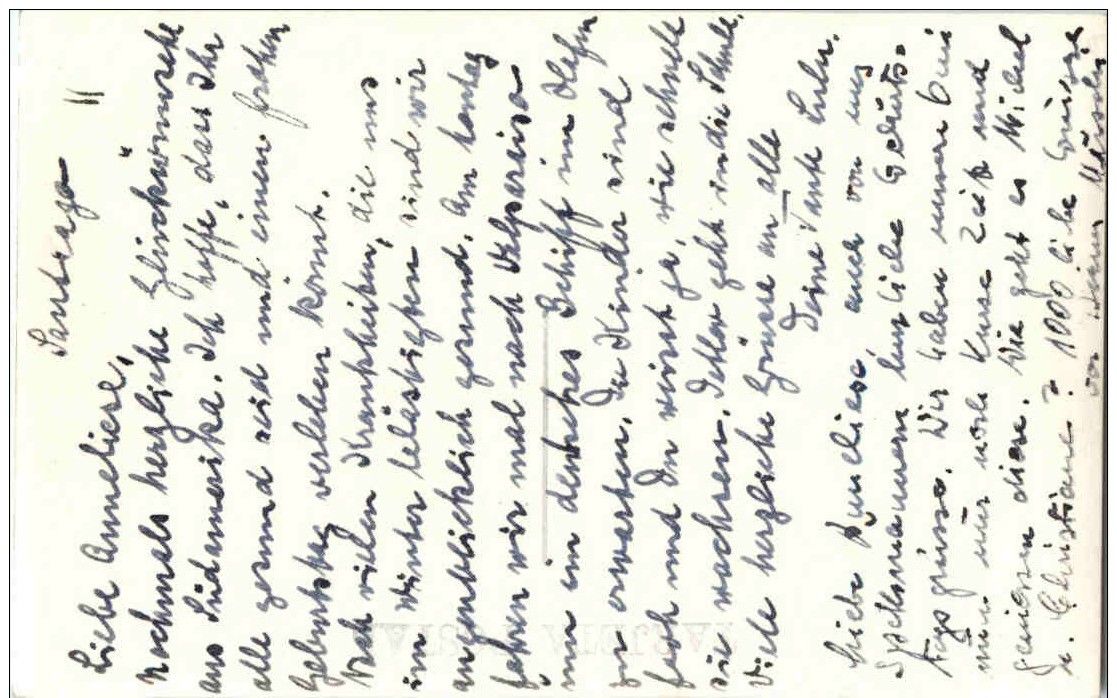 Santiago
Liebe Anneliese,
Nochmals herzliche Glückwünsche
aus Südamerika. Ich hoffe, dass Ihr
alle gesund seid und einen frohen
Geburtstag verleben könnt.
Nach vielen Krankheiten, die uns
im Winter belästigten sind wir
augenblicklich gesund. Am Sonntag
fahren wir mal nach Valparaiso
um ein deutsches Schiff im Hafen
zu erwarten. Die Kinder sind
fest und Du wirst ja, wie schnelle
sie wachsen. Detlev geht in die Schule.
Viele herzliche Grüsse an alle
Deine Tante
Liebe Anneliese, auch von uns
herzliche Geburts-
tagsgrüsse. Wir haben unsern
nun nur noch kurze Zeit und
geniessen diese. Wie geht es Michael
u. Christiane? 1000 liebe Grüsse
von